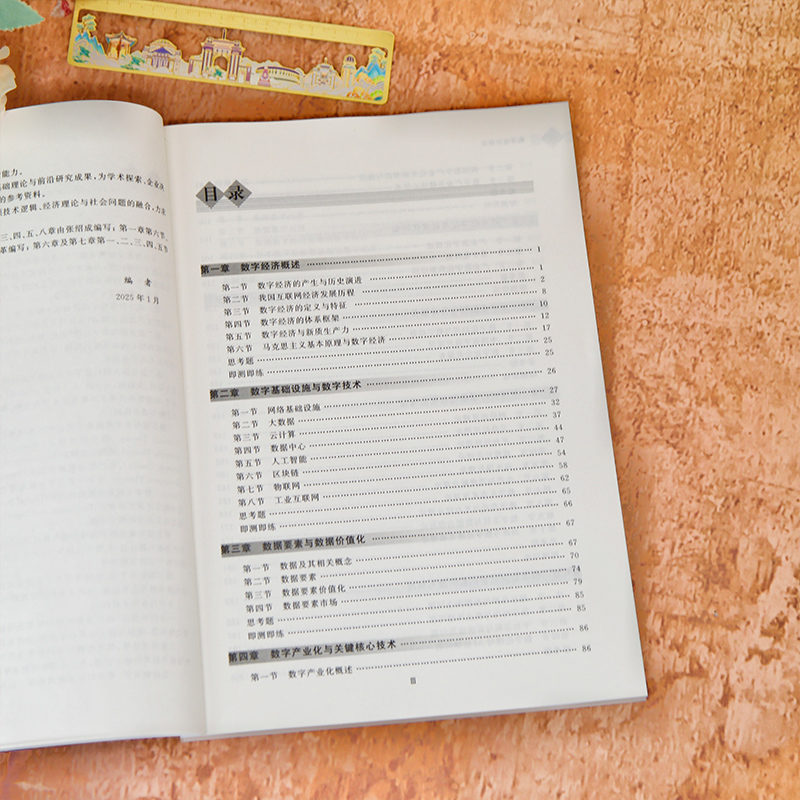 能力。
础理论与前沿研究成果，为学术探索、企业决
的参考资料。
技术逻辑、经济理论与社会问题的融合，力求
三、四、五、八章由张绍成编写；第一章第六节、
革编写；第六章及第七章第一、二、三、四、五节
编 者
2025 年 1 月
目录
第一章 数字经济概述 1
第一节 数字经济的产生与历史演进 1
第二节 我国互联网经济发展历程 2
第三节 数字经济的定义与特征 8
第四节 数字经济的体系框架 10
第五节 数字经济与新质生产力 12
第六节 马克思主义基本原理与数字经济 17
思考题 25
即测即练 25
第二章 数字基础设施与数字技术 26
第一节 网络基础设施 27
第二节 大数据 32
第三节 云计算 37
第四节 数据中心 44
第五节 人工智能 47
第六节 区块链 54
第七节 物联网 58
第八节 工业互联网 62
思考题 65
即测即练 66
第三章 数据要素与数据价值化 67
第一节 数据及其相关概念 67
第二节 数据要素 70
第三节 数据要素价值化 74
第四节 数据要素市场 79
思考题 85
即测即练 85
第四章 数字产业化与关键核心技术 86
第一节 数字产业化概述 86
Ⅲ